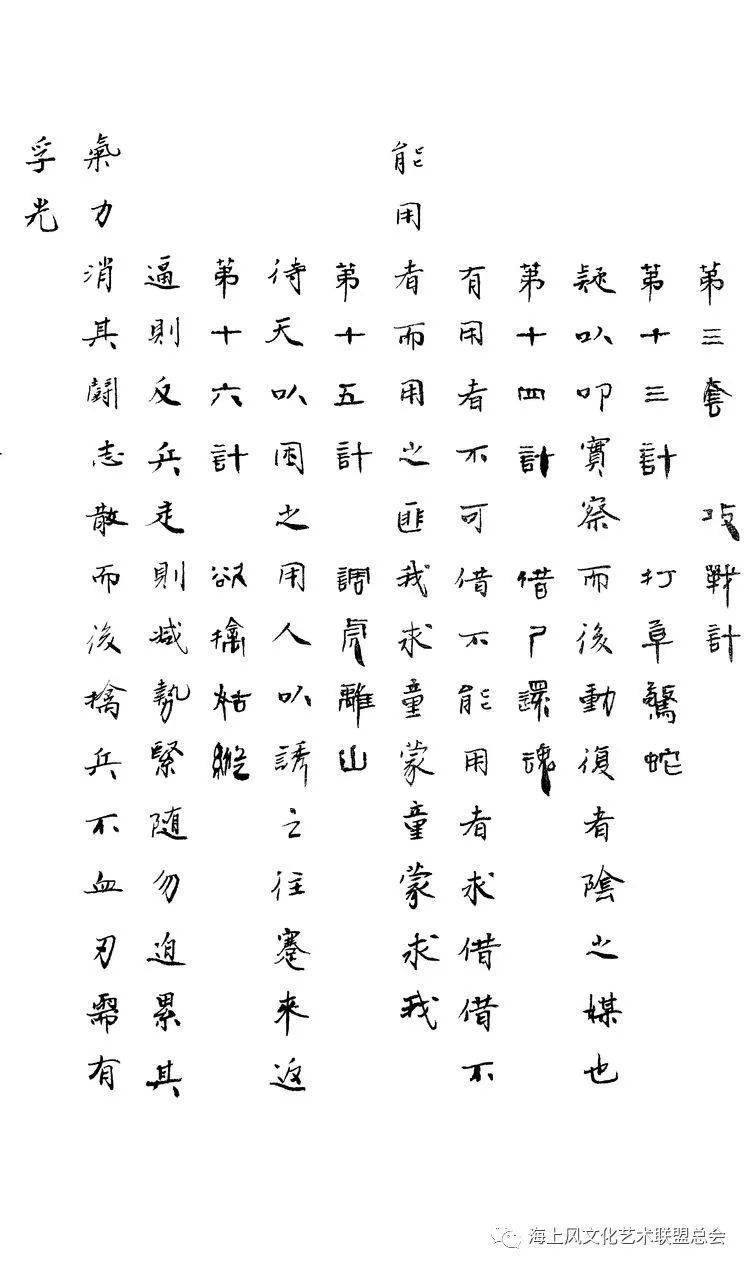 第三套 攻戰計
第十三計 打草驚蛇
疑以叩實察而後動復者陰之媒也
第十四計 借尸還魂
有用者不可借不能用者求借借不
能用者而用之匪我求童蒙童蒙求我
第十五計 調虎離山
待天以困之用人以誘之往蹇來返
第十六計 欲擒姑縱
逼則反兵走則减勢緊随勿迫累其
氣力消其鬪志散而後擒兵不血刃需有
孚光
海上风文化艺术联盟总会